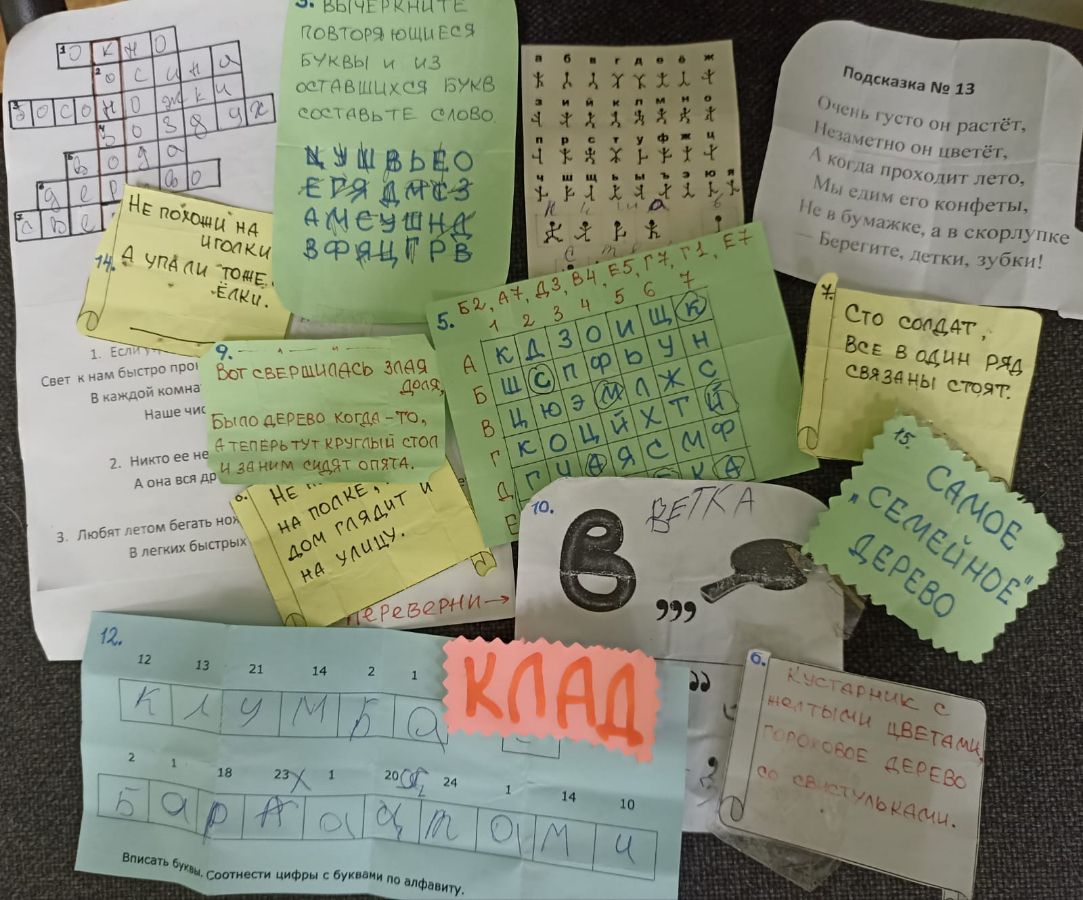 1 ОКНО
2 ОСИНА
3 БОСОНОЖКИ
4 ВОЗДУХ
5 ВОДА
6 ДЕРЕВО
7 СВЕ
1. Если
Свет к нам быстро
В каждой
Наше
2. Никто ее не
А она вся
3. Любят летом бегать
В легких быстрых
14. НЕ ПОХОЖИ НА
ИГОЛКИ
А УПАЛИ ТОЖЕ
ЁЛКИ.
3. ВЫЧЕРКНИТЕ
ПОВТОРЯЮЩИЕСЯ
БУКВЫ И ИЗ
ОСТАВШИХСЯ БУКВ
СОСТАВЬТЕ СЛОВО
ЕГЯДМСЗ
АМСУШНД
ВФЯЦГРВ
а б в г д е ё ж
з и й к л м н о
п р с т у ф ж ц
ч ш щ ь ы ъ э ю я
Подсказка № 13
Очень густо он растёт,
Незаметно он цветёт,
А когда проходит лето,
Мы едим его конфеты,
Не в бумажке, а в скорлупке
— Берегите, детки, зубки!
5. Б2, А7, Д3, В4, Е5, Г7, Г1, Е7
1 2 3 4 5 6 7
А К Д З О И Щ К
Б Ш С П Ф Ь У Н
В Ц Ю Э М Л Ж С
Г К О Ц Й Х Т Й
Д Г Ч А Я С М Ф
Е К А
7. СТО СОЛДАТ,
ВСЕ В ОДИН РЯД
СВЯЗАНЫ СТОЯТ.
9.
ВОТ СВЕРШИЛАСЬ ЗЛАЯ
ДОЛЯ,
БЫЛО ДЕРЕВО КОГДА-ТО,
А ТЕПЕРЬ ТУТ КРУГЛЫЙ СТОЛ
И ЗА НИМ СИДЯТ ОПЯТА.
НЕ
НА ПОЛКЕ,
ДОМ ГЛЯДИТ И
НА УЛИЦУ.
ПЕРЕВЕРНИ →
10. ВЕТКА
В ,,,
15. САМОЕ
"СЕМЕЙНОЕ"
ДЕРЕВО
12.
12 13 21 14 2 1
К Л У М Б А
КЛАД
2 1 18 23 1 20 24 1 14 10
Б а р А а ц т а м и
Вписать буквы. Соотнести цифры с буквами по алфавиту.
6. КУСТАРНИК С
ЖЕЛТЫМИ ЦВЕТАМИ,
ГОРОХОВОЕ ДЕРЕВО
СО СВИСТУЛЬКАМИ.